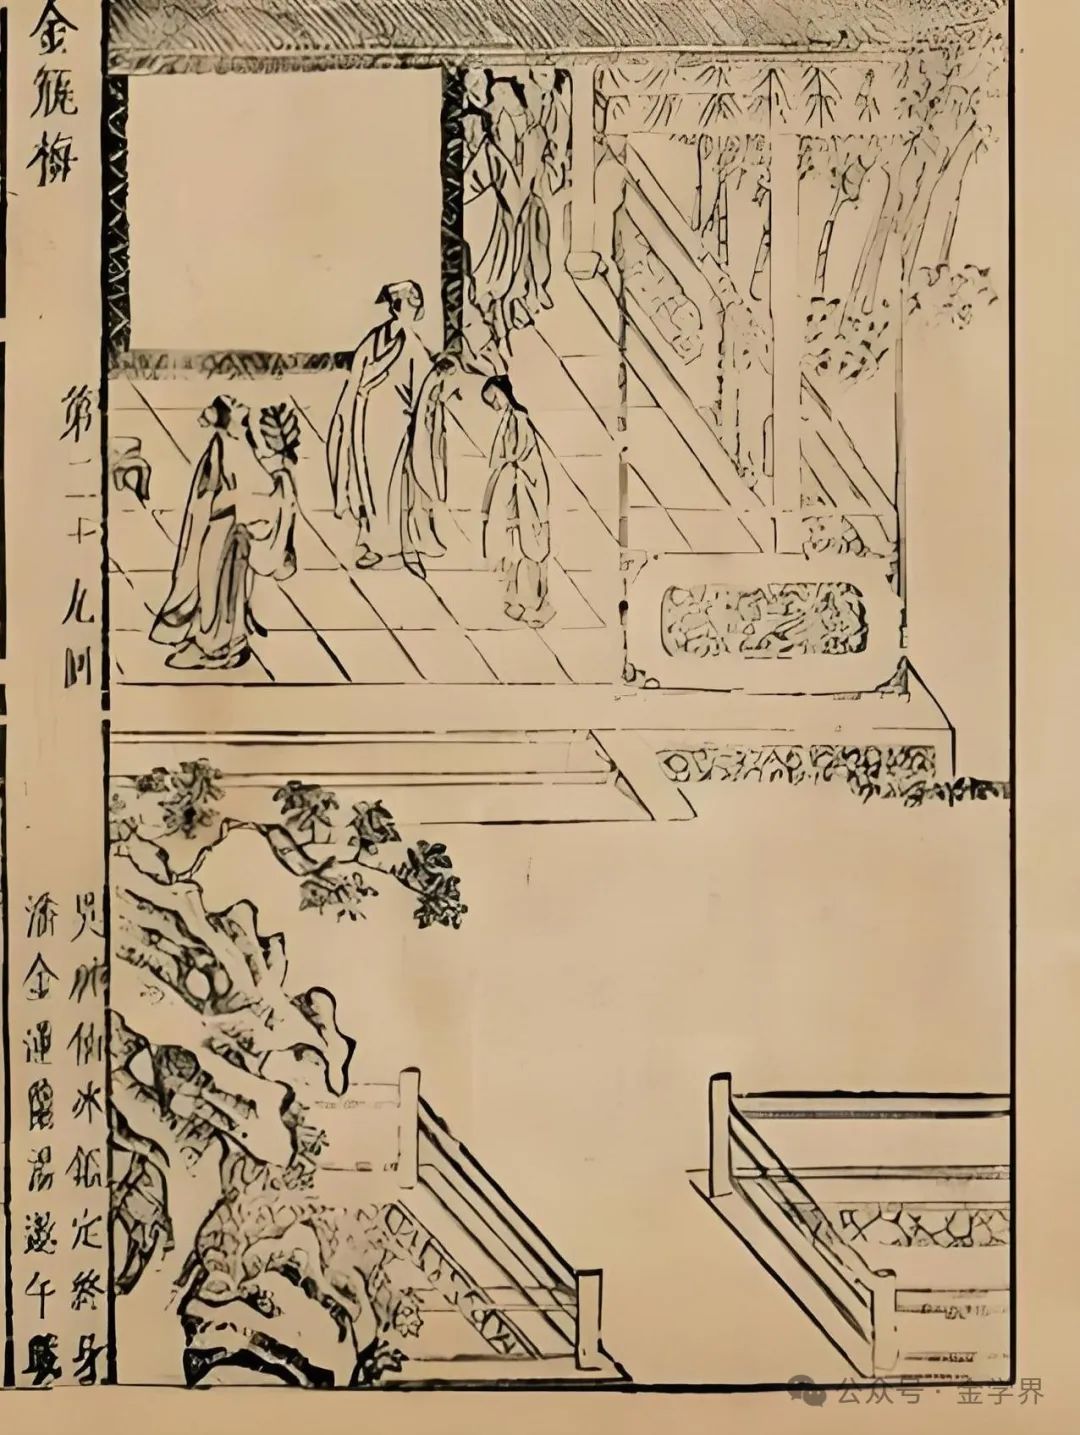 金瓶梅
第二十九回
吳神仙冰鑑定終身
潘金蓮蘭湯邀午戰
公众号 · 金学界